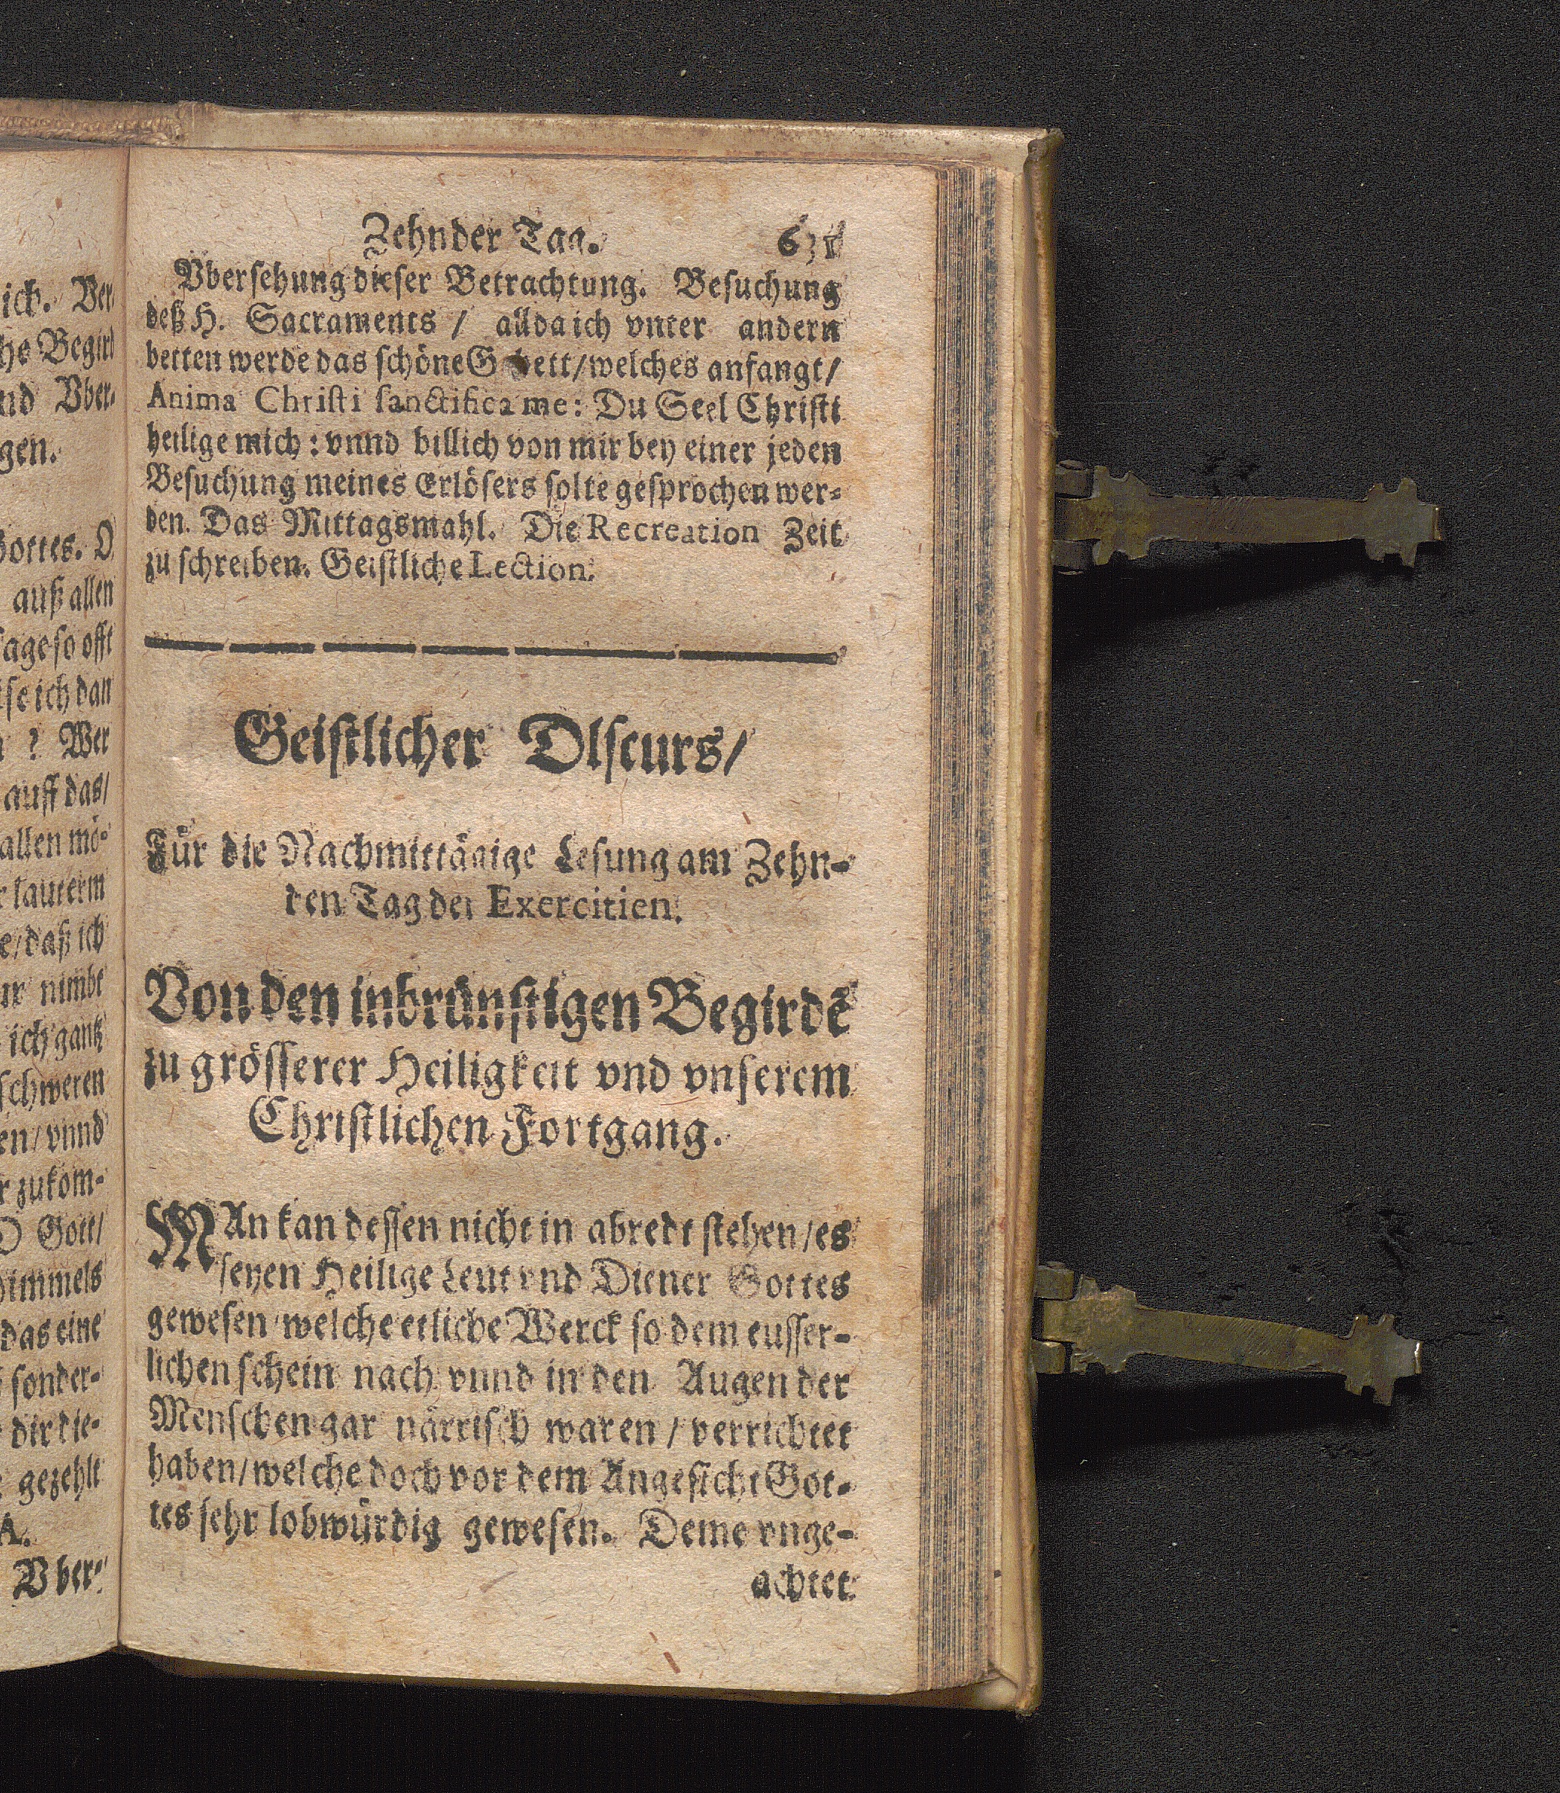 ick. Ver
he Begird
nd Vber-
gen.
Gottes. O
auß allen
sage so offt
ise ich dan
? Wer
auff das/
allen mö-
r lauterm
e/daß ich
ur nimbt
ich gantz
schweren
en/vnnd
r zukom-
O Gott/
Himmels
das eine
sonder-
dir die-
gezehlt
A.
Vber-
Zehnder Tag. 631
Vbersehung dieser Betrachtung. Besuchung
deß H. Sacraments / allda ich vnter andern
betten werde das schöne Gebett/welches anfangt/
Anima Christi sanctifica me: Du Seel Christi
heilige mich: vnnd billich von mir bey einer jeden
Besuchung meines Erlösers solte gesprochen wer-
den. Das Mittagsmahl. Die Recreation Zeit
zu schreiben. Geistliche Lection.
Geistlicher DIscurs/
Für die Nachmittägige Lesung am Zehn-
den Tag der Exercitien.
Von den inbrünstigen Begirdē
zu grösserer Heiligkeit vnd vnserem
Christlichen Fortgang.
MAn kan dessen nicht in abredt stehen/es
seyen Heilige Leut vnd Diener Gottes
gewesen/welche etliche Werck so dem eusser-
lichen schein nach vnnd in den Augen der
Menschen gar närrisch waren/verrichtet
haben/welche doch vor dem Angesicht Got-
tes sehr lobwürdig gewesen. Deme vnge-
achtet